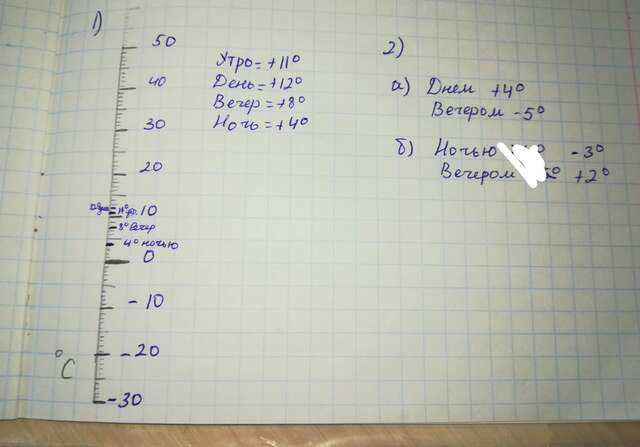 1)
50
40
30
20
10
0
-10
-20
-30
°C
11° ут.
8° вечер
4° ночью
Утро = +11°
День = +12°
Вечер = +8°
Ночь = +4°
2)
а) Днем +4°
Вечером -5°
б) Ночью -3°
Вечером +2°